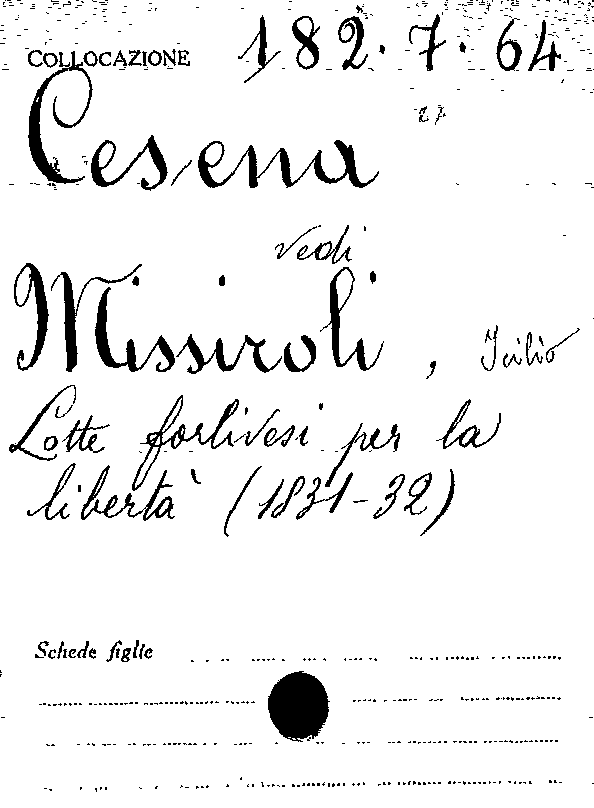 COLLOCAZIONE 182.7.64
Cesena
vedi
Missiroli, Icilio
Lotte forlivesi per la
libertà (1831-32)
Schede figlie